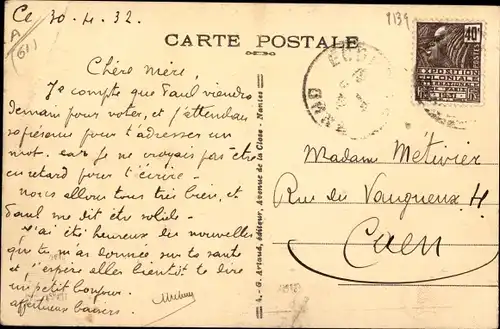 Ce 30.4.32.
A
(61)
1139
CARTE POSTALE
Chère mère,
Je compte que Paul viendra
demain pour voter, et j'attendais
sa présence pour t'adresser un
mot. car je ne croyais pas être
en retard pour t'écrire.
nous allons tous très bien, et
Paul me dit être solide.
J'ai été heureux des nouvelles
que tu m'as données sur ta santé
et j'espère aller bientôt te dire
un petit bonjour.
affectueux baisers
4. - G. Artaud, éditeur, Avenue de la Close - Nantes
40c
EXPOSITION
COLONIALE
INTERNATIONALE
PARIS 1931
Madame Métivier
Rue du Vaugueux 4
Caen